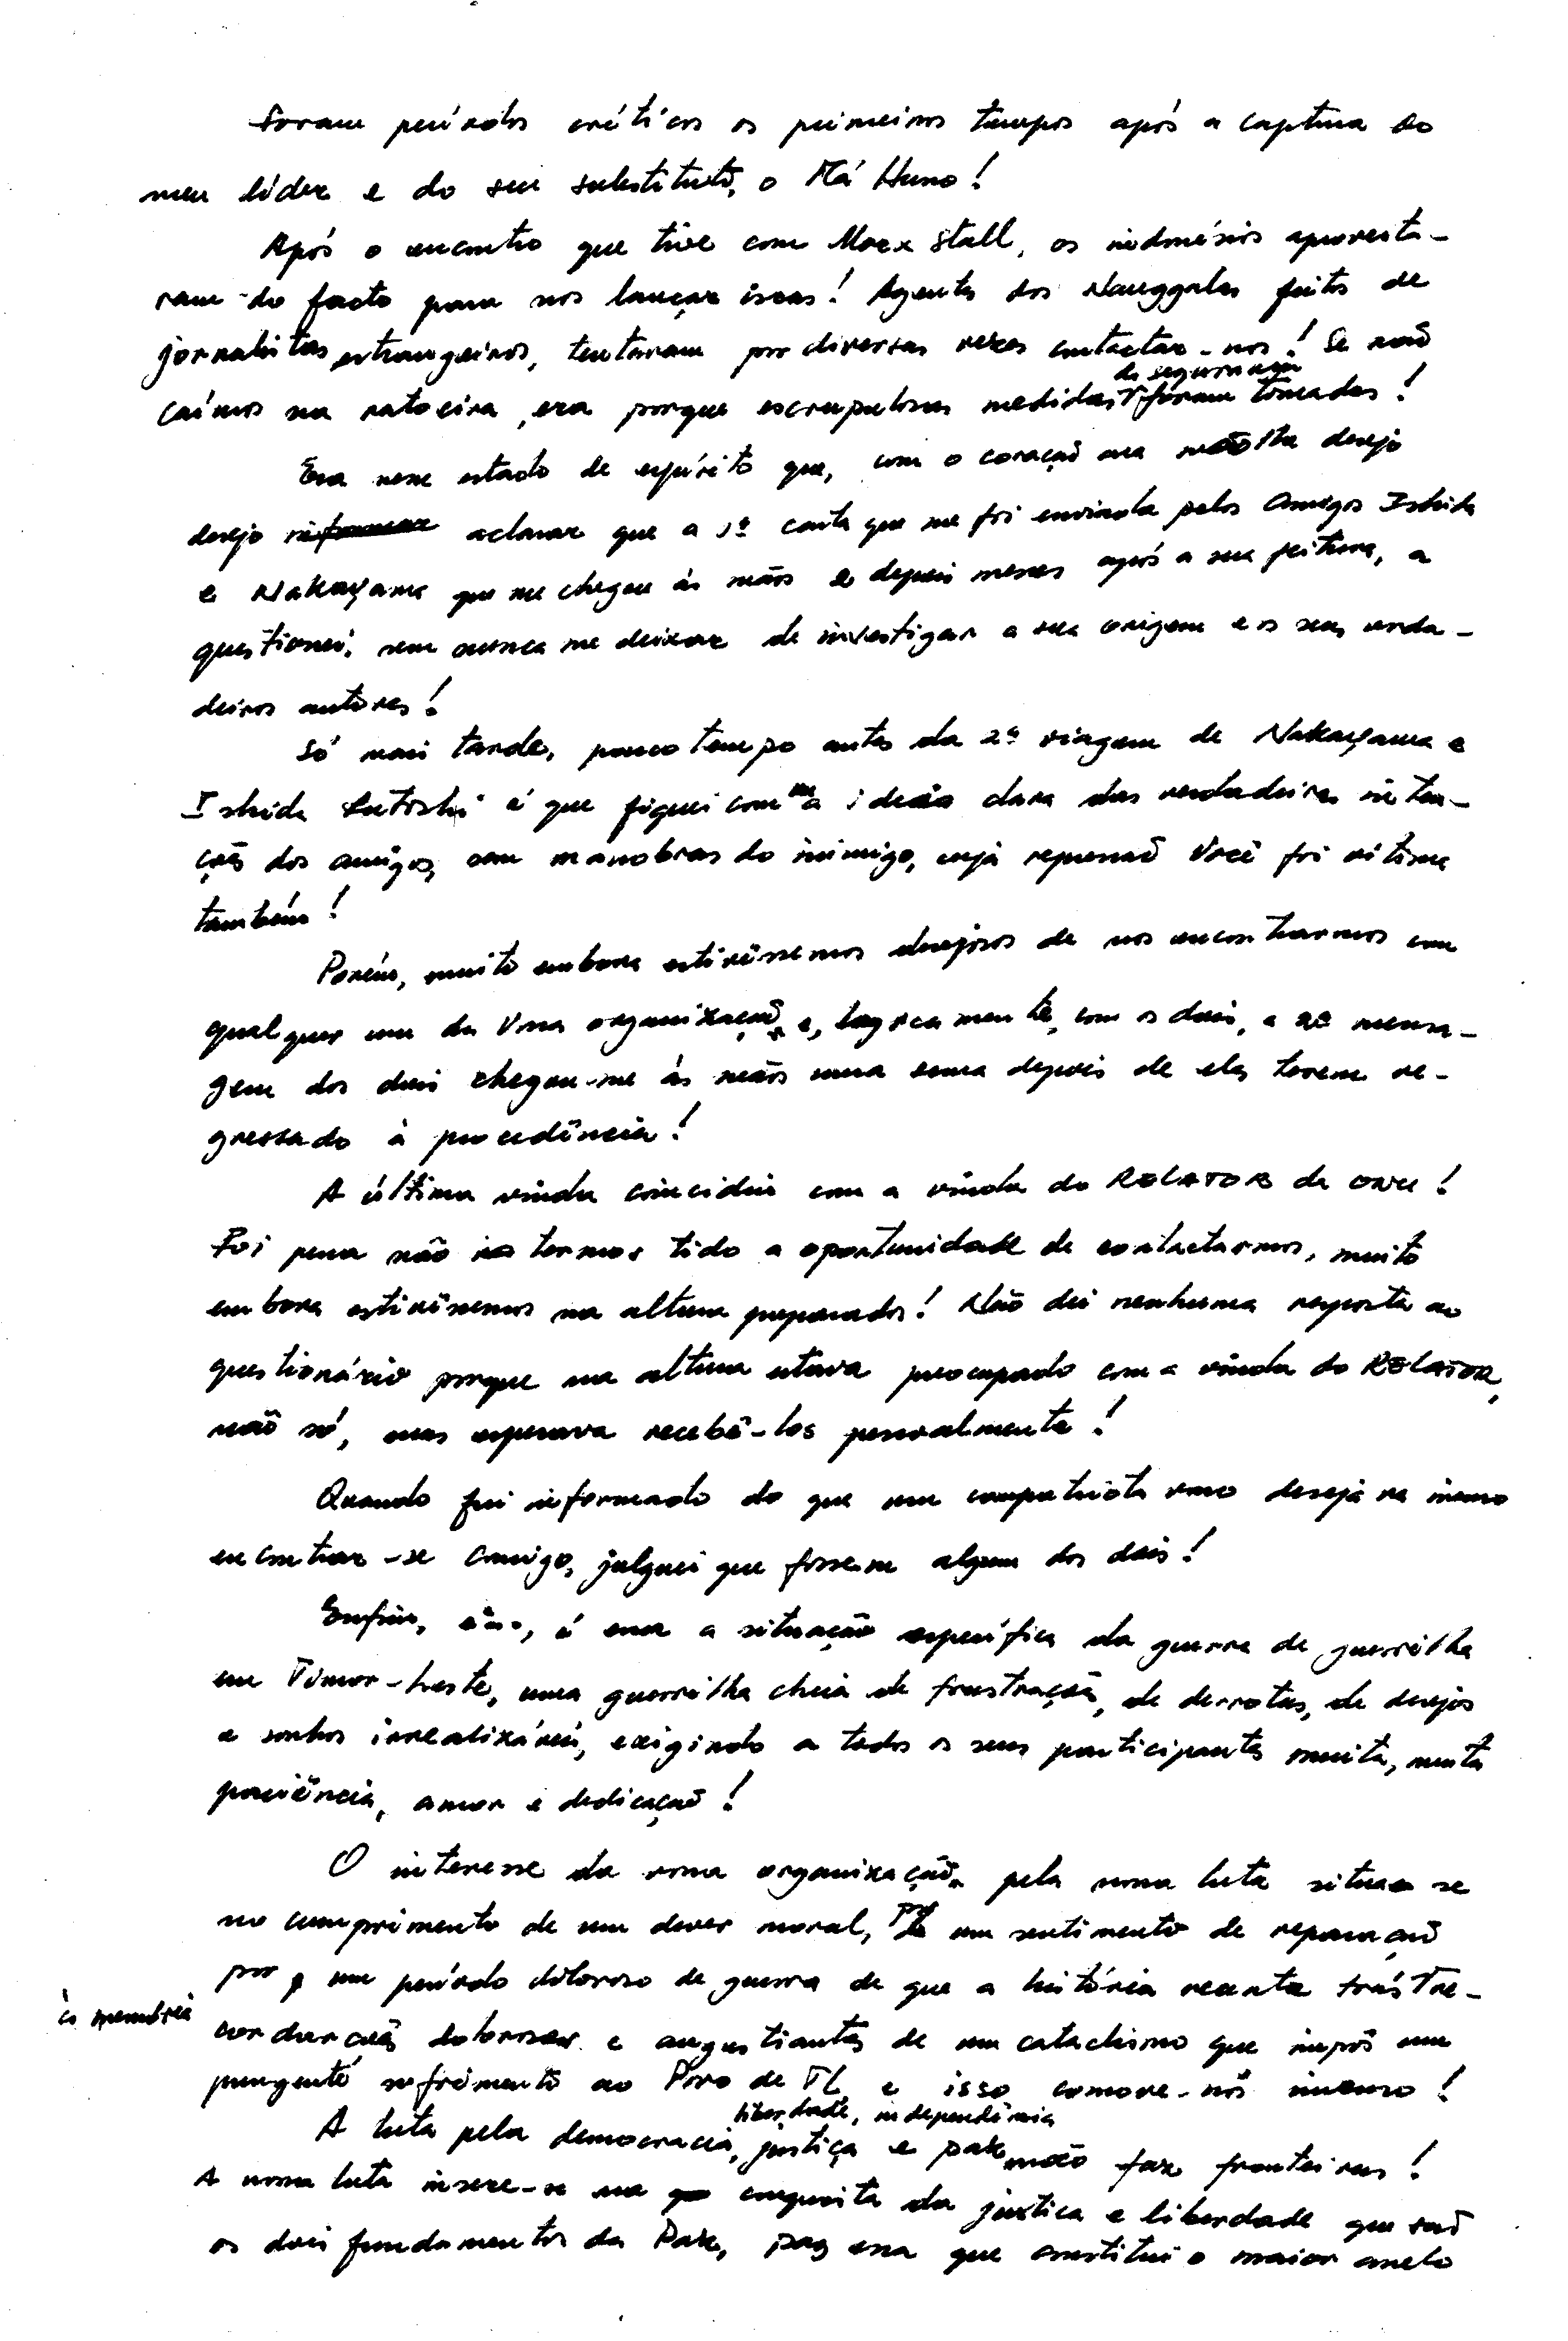 Foram períodos críticos os primeiros tempos após a captura do
meu líder e do seu substituto, o Má Huno!
Após o encontro que tive com Max Stall, os indonésios aproveita-
ram-do facto para nos lançar iscas! Agentes dos Nanggalas feitos de
jornalistas estrangeiros, tentaram por diversas vezes contactar-nos! Se não
caímos na ratoeira, era porque escrupulosas medidas de segurança foram tomadas!
Era nesse estado de espírito que, com o coração na mão lhe desejo
desejo informar aclarar que a 1ª carta que me foi enviada pelos Amigos Ishida
e Nakayama que me chegou às mãos e depois meses após a sua feitura, a
questionei, sem nunca me deixar de investigar a sua origem e os seus verda-
deiros autores!
Só mais tarde, pouco tempo antes da 2ª viagem de Nakayama e
Ishida Satoshi é que fiquei com uma ideia clara das verdadeiras inten-
ções dos amigos, sem manobras do inimigo, cuja repressão Você foi vítima
também!
Porém, muito embora estivéssemos desejosos de nos encontrarmos com
qualquer um da Vossa organização, e, logicamente, com os dois, a 2ª mensa-
gem dos dois chegou-me às mãos uma semana depois de eles terem re-
gressado à procedência!
A última vinda coincidiu com a vinda do RELATOR da ONU!
Foi pena não termos tido a oportunidade de contactarmos, muito
embora estivéssemos na altura preparados! Não dei nenhuma resposta ao
questionário porque na altura estava preocupado com a vinda do RELATOR,
não só, mas esperava recebê-los pessoalmente!
Quando fui informado do que um compatriota vosso desejava imenso
encontrar-se comigo, julguei que fossem algum dos dois!
Enfim, é essa a situação específica da guerra de guerrilha
em Timor-Leste, uma guerrilha cheia de frustrações, de derrotas, de desejos
e sonhos irrealizáveis, exigindo a todos os seus participantes muita, muita
paciência, amor e dedicação!
O interesse da vossa organização pela nossa luta situa se
no cumprimento de um dever moral, por um sentimento de reparação
por um período doloroso de guerra de que a história recente trás re-
à memória
cordações dolorosas e angustiantes de um cataclismo que impôs um
pungente sofrimento ao Povo de TL e isso comove-nos imenso!
A luta pela democracia, liberdade, independência justiça e paz não faz fronteiras!
A nossa luta insere-se na conquista da justiça e liberdade que são
os dois fundamentos da Paz, paz essa que constitui o maior anelo